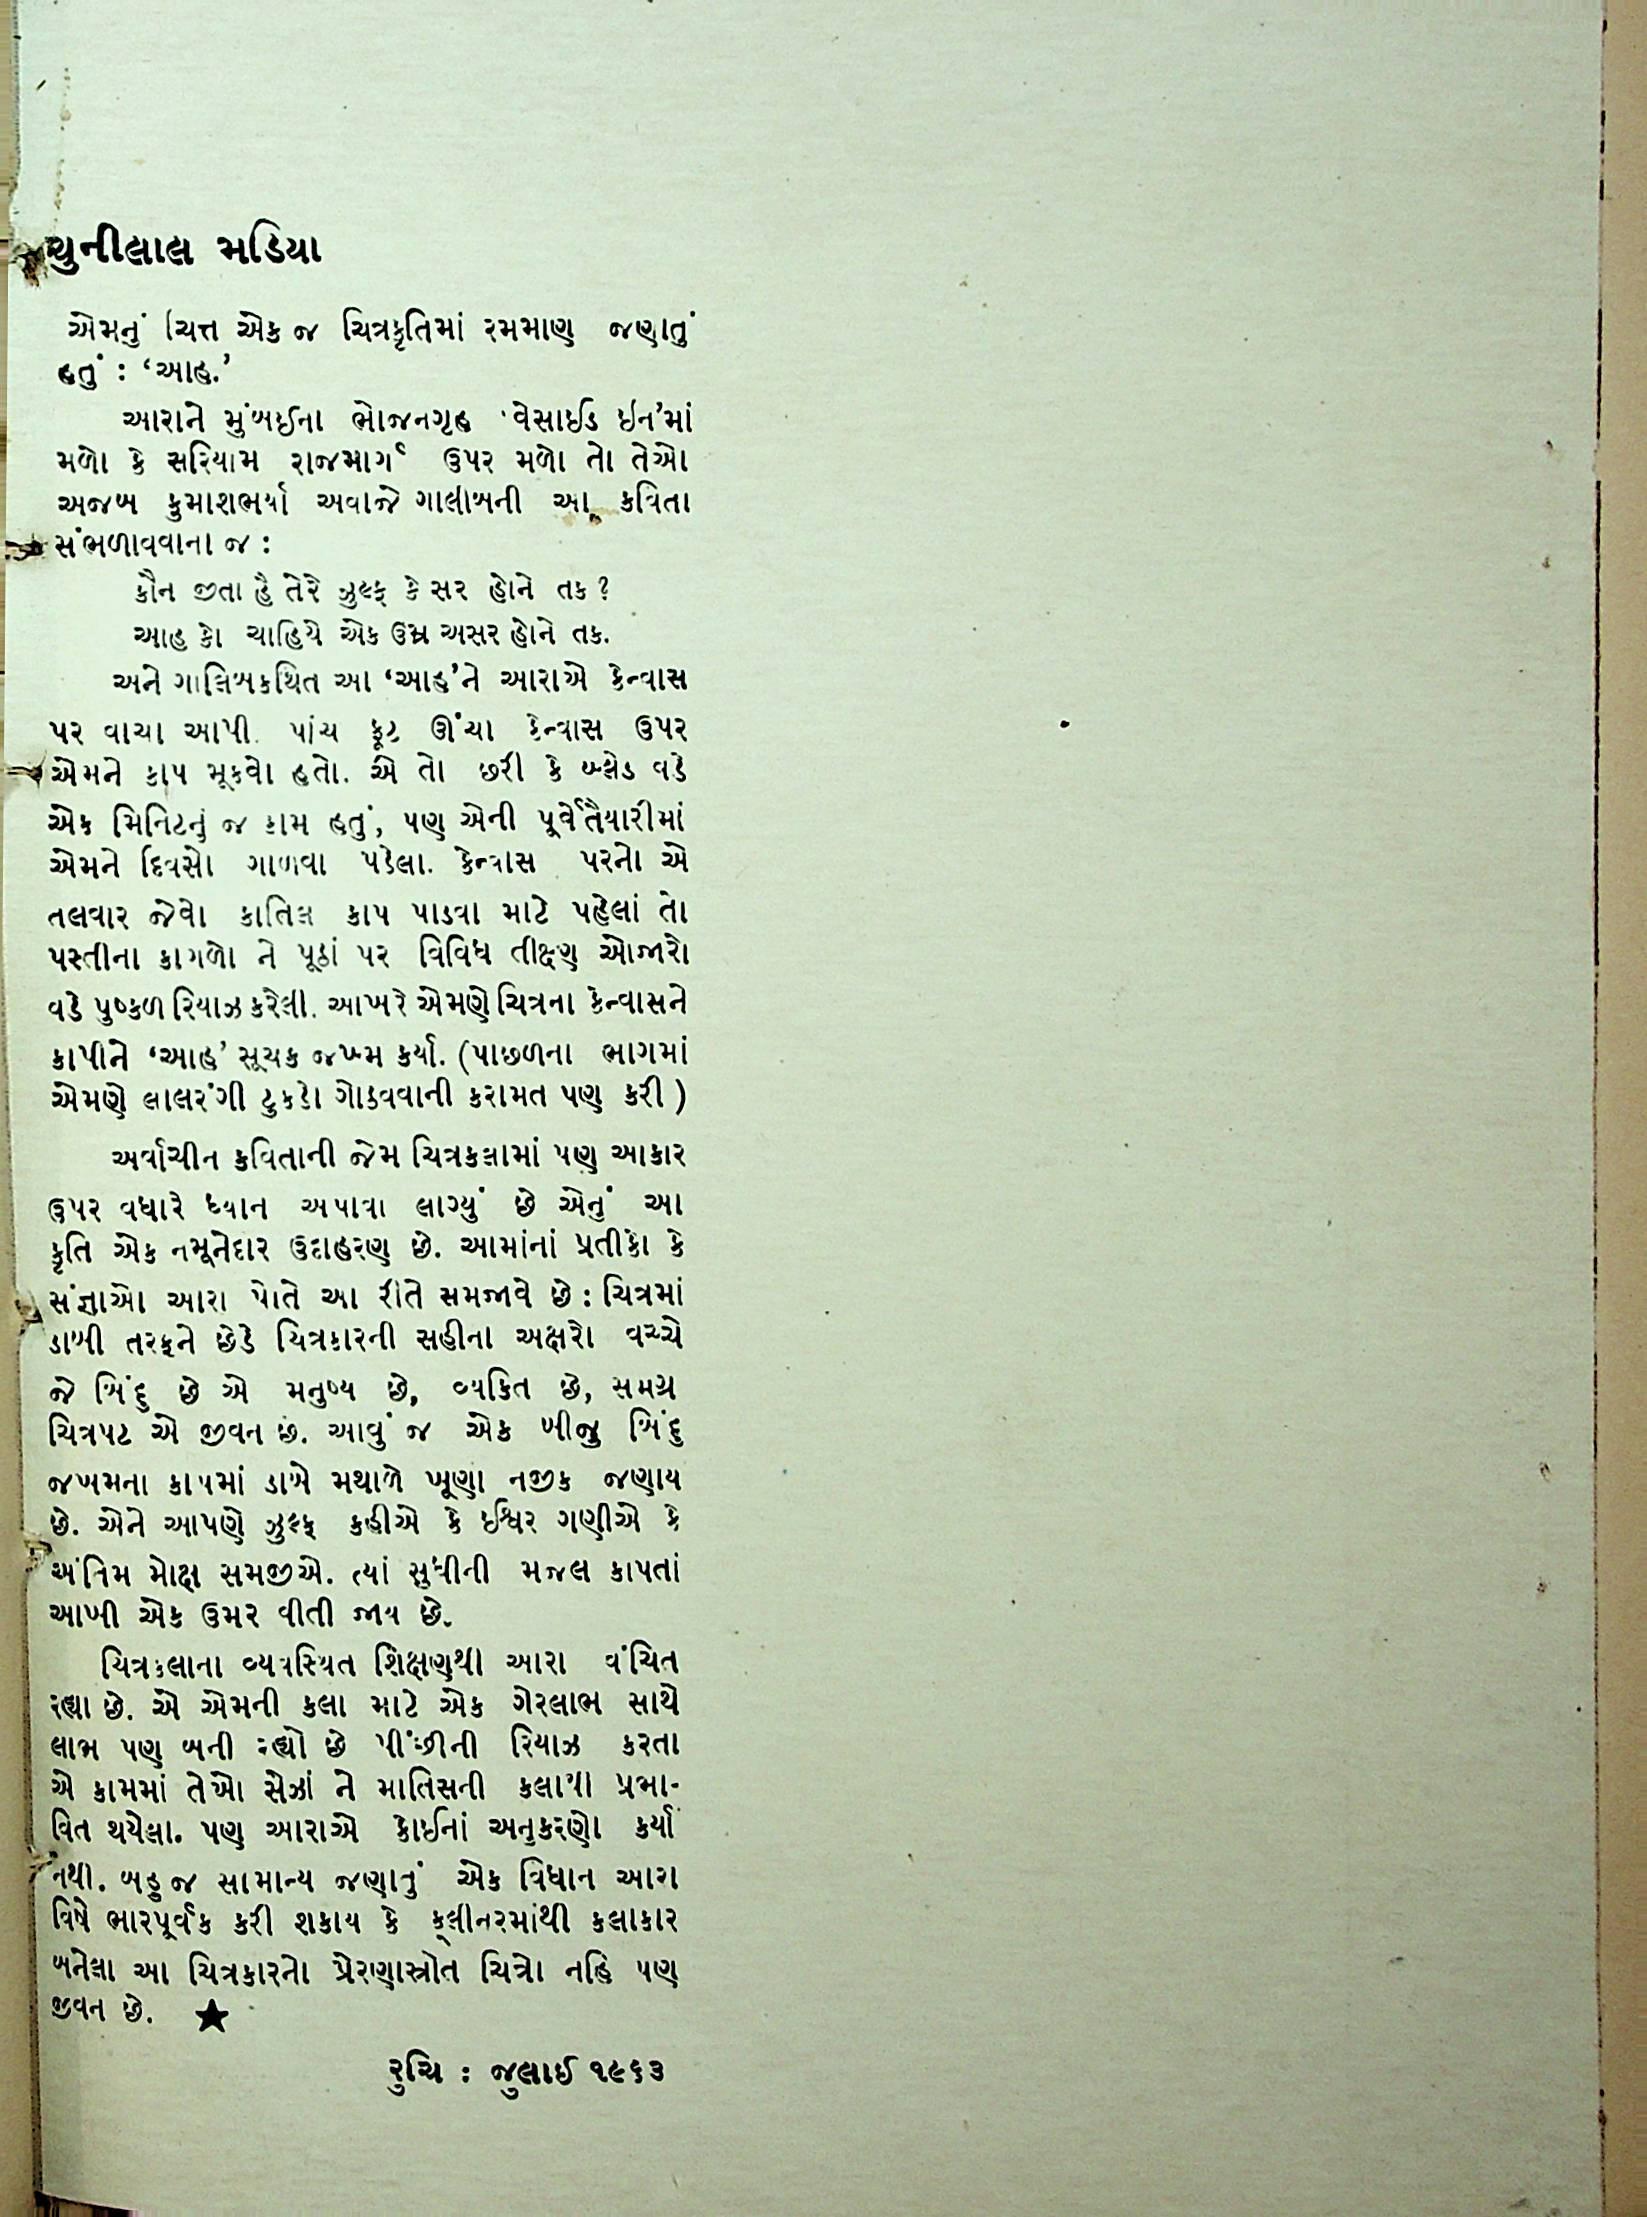 ચુનીલાલ મડિયા
એમનું ચિત્ત એક જ ચિત્રકૃતિમાં રમમાણ જણાતું
હતું : ‘આહ.’
આરાને મુંબઈના ભોજનગૃહ ‘વેસાઈડ ઇન’માં
મળો કે સરિયામ રાજમાર્ગ ઉપર મળો તો તેઓ
અજબ કુમાશભર્યા અવાજે ગાલીબની આ કવિતા
સંભળાવવાના જ :
કૌન જીતા હૈ તેરે ઝુલ્ફ કે સર હોને તક?
આહ કો ચાહિયે એક ઉમ્ર અસર હોને તક.
અને ગાલિબકથિત આ ‘આહ’ને આરાએ કેન્વાસ
પર વાચા આપી. પાંચ ફૂટ ઊંચા કેન્વાસ ઉપર
એમને કાપ મૂકવો હતો. એ તો છરી કે બ્લેડ વડે
એક મિનિટનું જ કામ હતું, પણ એની પૂર્વતૈયારીમાં
એમને દિવસો ગાળવા પડેલા. કેન્વાસ પરનો એ
તલવાર જેવો કાતિલ કાપ પાડવા માટે પહેલાં તો
પસ્તીના કાગળો ને પૂઠાં પર વિવિધ તીક્ષ્ણ ઓજારો
વડે પુષ્કળ રિયાઝ કરેલી. આખરે એમણે ચિત્રના કેન્વાસને
કાપીને ‘આહ’ સૂચક જખ્મ કર્યા. (પાછળના ભાગમાં
એમણે લાલરંગી ટુકડો ગોઠવવાની કરામત પણ કરી )
અર્વાચીન કવિતાની જેમ ચિત્રકલામાં પણ આકાર
ઉપર વધારે ધ્યાન અપાવા લાગ્યું છે એનું આ
કૃતિ એક નમૂનેદાર ઉદાહરણ છે. આમાંનાં પ્રતીકો કે
સંજ્ઞાઓ આરા પોતે આ રીતે સમજાવે છે : ચિત્રમાં
ડાબી તરફને છેડે ચિત્રકારની સહીના અક્ષરો વચ્ચે
જે બિંદુ છે એ મનુષ્ય છે, વ્યકિત છે, સમગ્ર
ચિત્રપટ એ જીવન છે. આવું જ એક બીજુ બિંદુ
જખમના કાપમાં ડાબે મથાળે ખૂણા નજીક જણાય
છે. એને આપણે ઝુલ્ફ કહીએ કે ઈશ્વર ગણીએ કે
અંતિમ મોક્ષ સમજીએ. ત્યાં સુધીની મજલ કાપતાં
આખી એક ઉમર વીતી જાય છે.
ચિત્રકલાના વ્યવસ્થિત શિક્ષણથી આરા વંચિત
રહ્યા છે. એ એમની કલા માટે એક ગેરલાભ સાથે
લાભ પણ બની રહ્યો છે પીંછીની રિયાઝ કરતા
એ કામમાં તેઓ સેઝાં ને માતિસની કલાથી પ્રભા-
વિત થયેલા. પણ આરાએ કોઈનાં અનુકરણો કર્યાં
નથી. બહુ જ સામાન્ય જણાતું એક વિધાન આરા
વિષે ભારપૂર્વક કરી શકાય કે ક્લીનરમાંથી કલાકાર
બનેલા આ ચિત્રકારનો પ્રેરણાસ્ત્રોત ચિત્રો નહિ પણ
જીવન છે. ★
રુચિ : જુલાઈ ૧૯૬૩